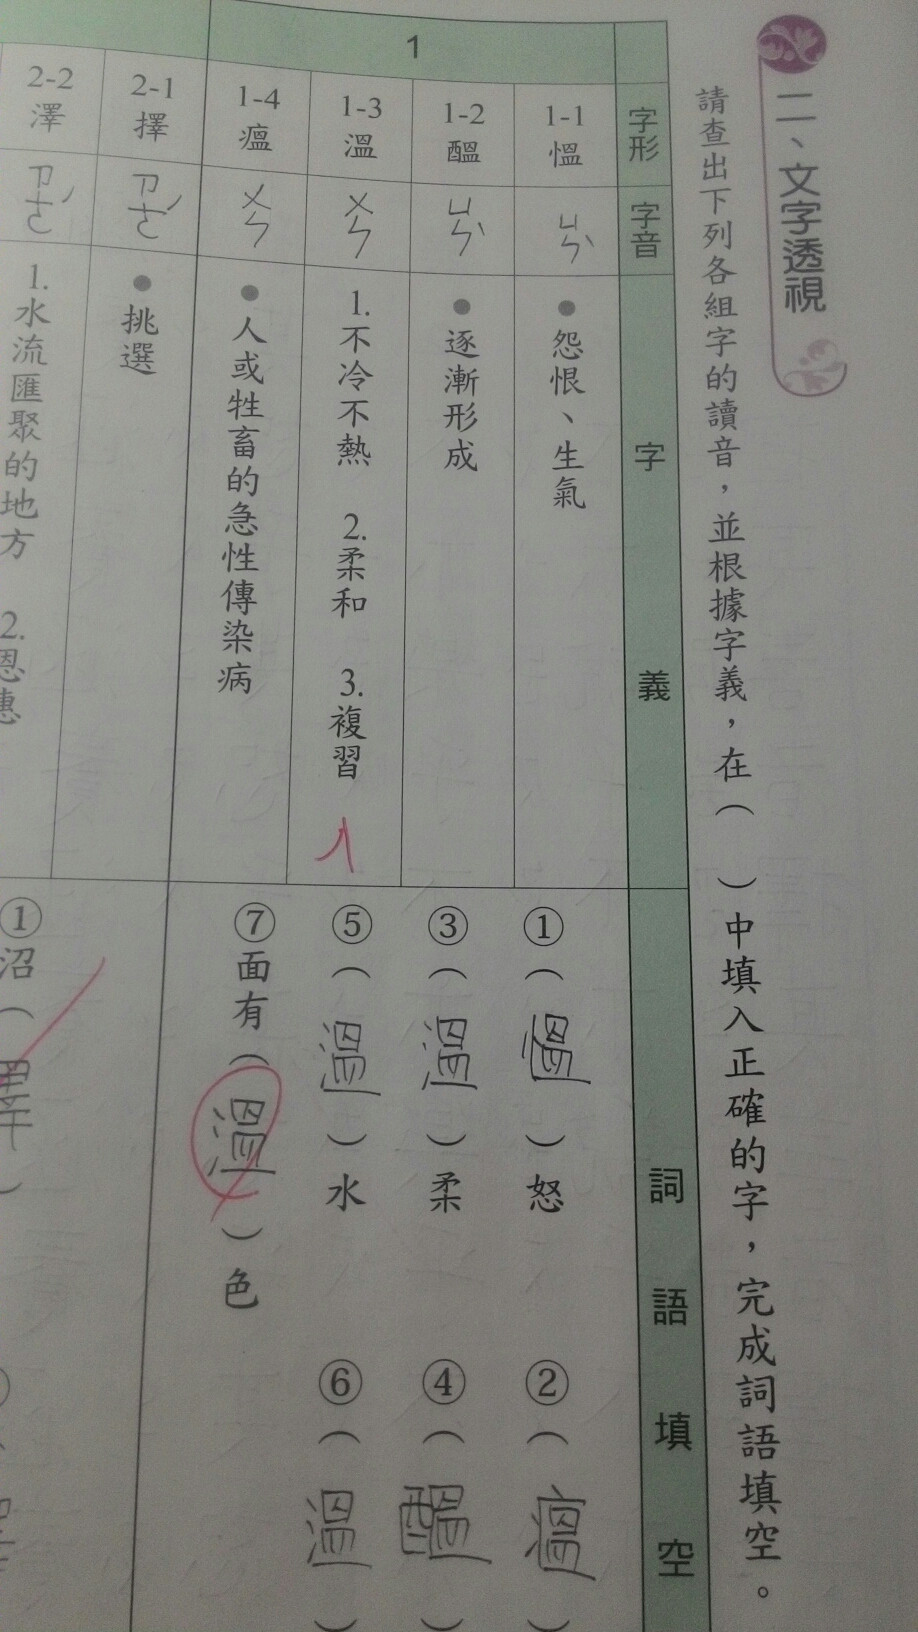 二、文字透視
請查出下列各組字的讀音，並根據字義，在（　）中填入正確的字，完成詞語填空。
字形
字音
字義
詞語填空
1
1-1 慍
ㄩㄣˋ
●怨恨、生氣
①（慍）怒
②（瘟）
1-2 醞
ㄩㄣˋ
●逐漸形成
③（溫）柔
④（醞）
1-3 溫
ㄨㄣ
1.不冷不熱 2.柔和 3.複習
⑤（溫）水
⑥（溫）
1-4 瘟
ㄨㄣ
●人或牲畜的急性傳染病
⑦面有（溫）色
2-1 擇
ㄗㄜˊ
●挑選
2-2 澤
ㄗㄜˊ
1.水流匯聚的地方 2.恩惠
①沼（